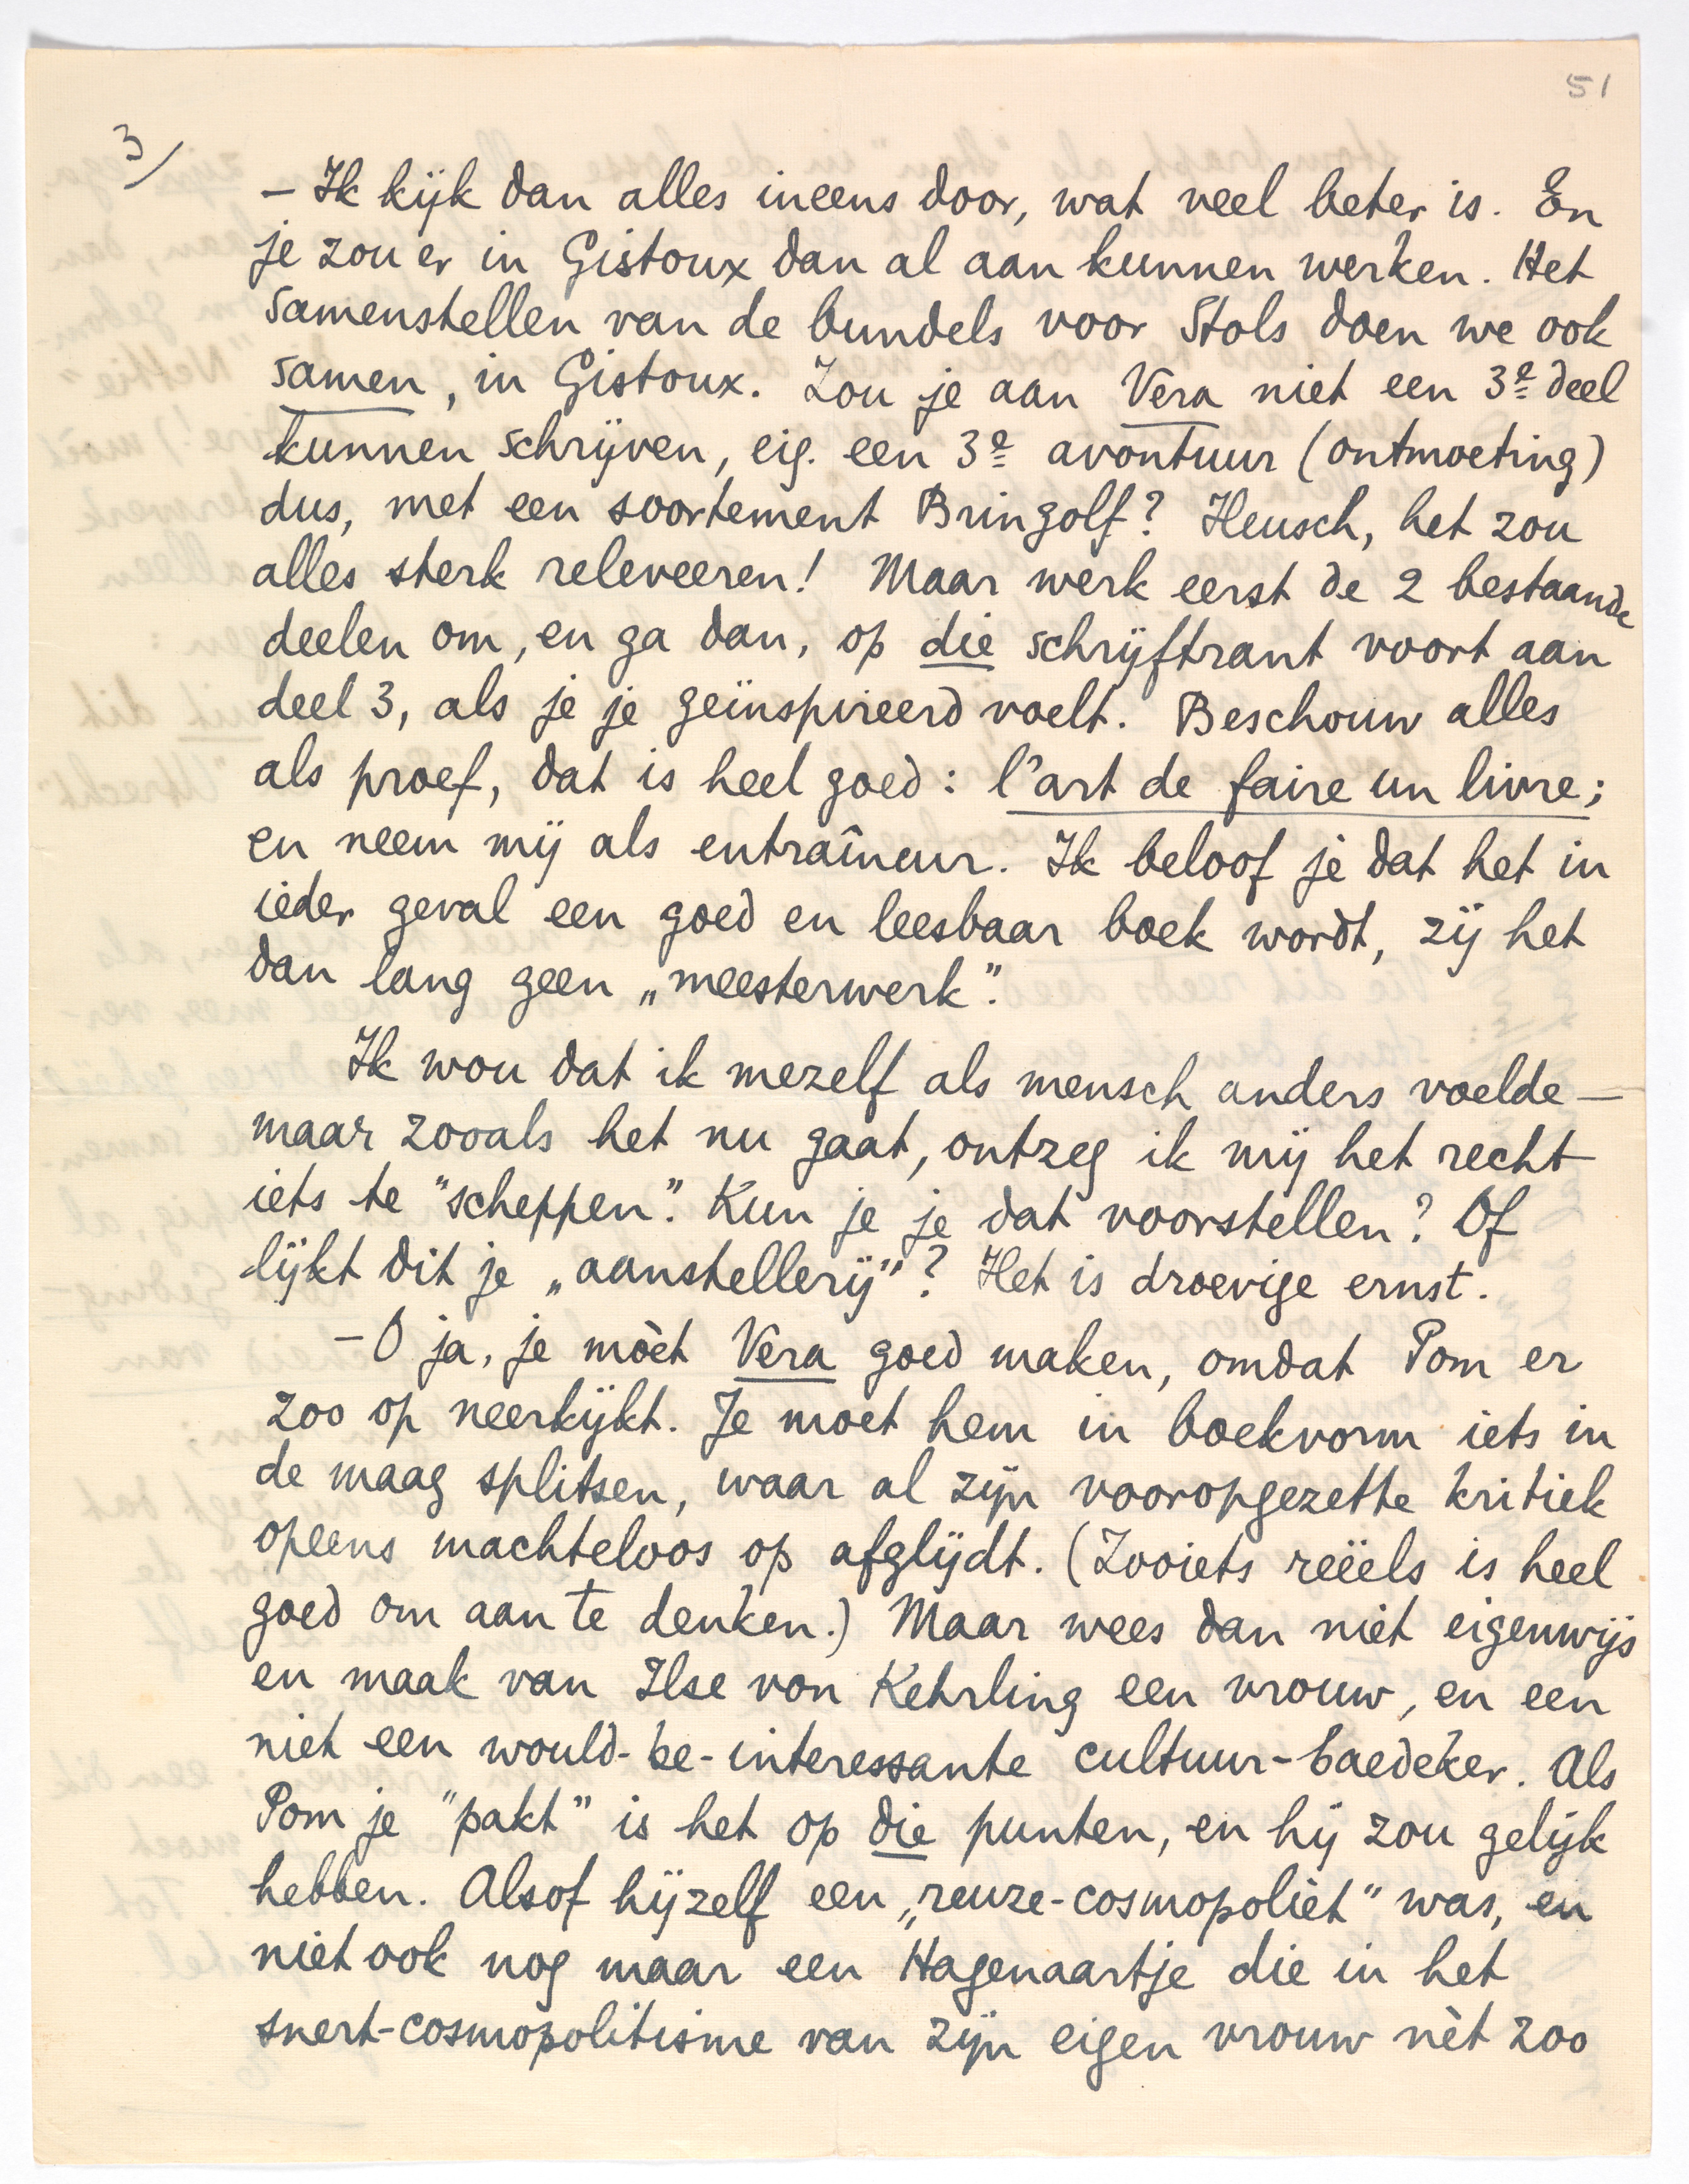 51
3/
– Ik kijk dan alles ineens door, wat veel beter is. En
je zou er in Gistoux dan al aan kunnen werken. Het
samenstellen van de bundels voor Stols doen we ook
samen, in Gistoux. Zou je aan Vera niet een 3e deel
kunnen schrijven, eig. een 3e avontuur (ontmoeting)
dus, met een soortement Bringolf? Heusch, het zou
alles sterk releveeren! Maar werk eerst de 2 bestaande
deelen om, en ga dan, op die schrijftrant voort aan
deel 3, als je je geïnspireerd voelt. Beschouw alles
als proef, dat is heel goed: l'art de faire un livre;
en neem mij als entraîneur. Ik beloof je dat het in
ieder geval een goed en leesbaar boek wordt, zij het
dan lang geen „meesterwerk".
Ik wou dat ik mezelf als mensch anders voelde –
maar zooals het nu gaat, ontzeg ik mij het recht
iets te "scheppen". Kun je je dat voorstellen? Of
lijkt dit je „aanstellerij"? Het is droevige ernst.
– O ja, je mòet Vera goed maken, omdat Pom er
zoo op neerkijkt. Je moet hem in boekvorm iets in
de maag splitsen, waar al zijn vooropgezette kritiek
opeens machteloos op afglijdt. (Zooiets reëels is heel
goed om aan te denken.) Maar wees dan niet eigenwijs
en maak van Ilse von Kehrling een vrouw, en een
niet een would-be-interessante cultuur-baedeker. Als
Pom je "pakt" is het op die punten, en hij zou gelijk
hebben. Alsof hijzelf een „reuze-cosmopoliet" was, en
niet ook nog maar een Hagenaartje die in het
snert-cosmopolitisme van zijn eigen vrouw nèt zoo